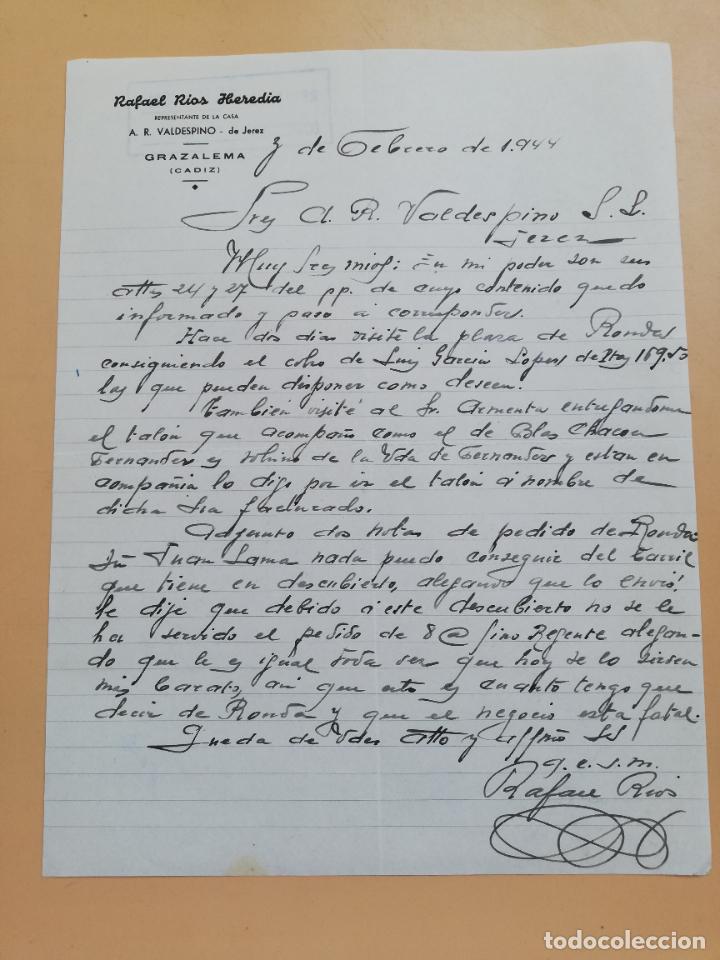 Rafael Ríos Heredia
REPRESENTANTE DE LA CASA
A. R. VALDESPINO - de Jerez
GRAZALEMA
(CADIZ)
de Febrero de 1.944
Sres A. R. Valdespino S. L.
Jerez
Muy Sres mios: En mi poder son sus
attas 24 y 27 del pp. de cuyo contenido quedo
informado y paso a corresponder.
Hace dos dias visité la plaza de Ronda
consiguiendo el cobro de Luis Garcia Lopez de 169.50
las que pueden disponer como deseen.
También visité al Sr. Armenta entregandome
el talón que acompaño como el de Blas Chacon
Fernandez es sobrino de la Vda de Fernandez y estan en
compañia lo digo por ir el talón á nombre de
dicha Sra facturado.
Adjunto dos notas de pedido de Ronda
Juan Lama nada puedo conseguir del barril
que tiene en descubierto, alegando que lo envió!
le dije que debido á este descubierto no se le
ha servido el pedido de 8 @ fino Regente alegan-
do que le es igual toda vez que hoy se lo sirven
más barato, asi que esto es cuanto tengo que
decir de Ronda y que el negocio esta fatal.
Queda de Vdes atto y affmo SS
q. e. s. m.
Rafael Rios
todocoleccion.net